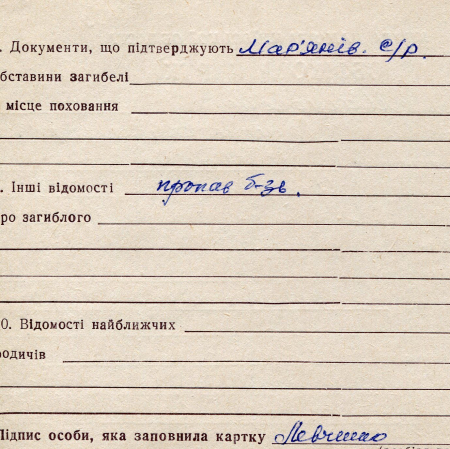 . Документи, що підтверджують Мар'янів. с/р.
бставини загибелі
місце поховання
. Інші відомості пропав б-зв.
ро загиблого
0. Відомості найближчих
одичів
Підпис особи, яка заповнила картку